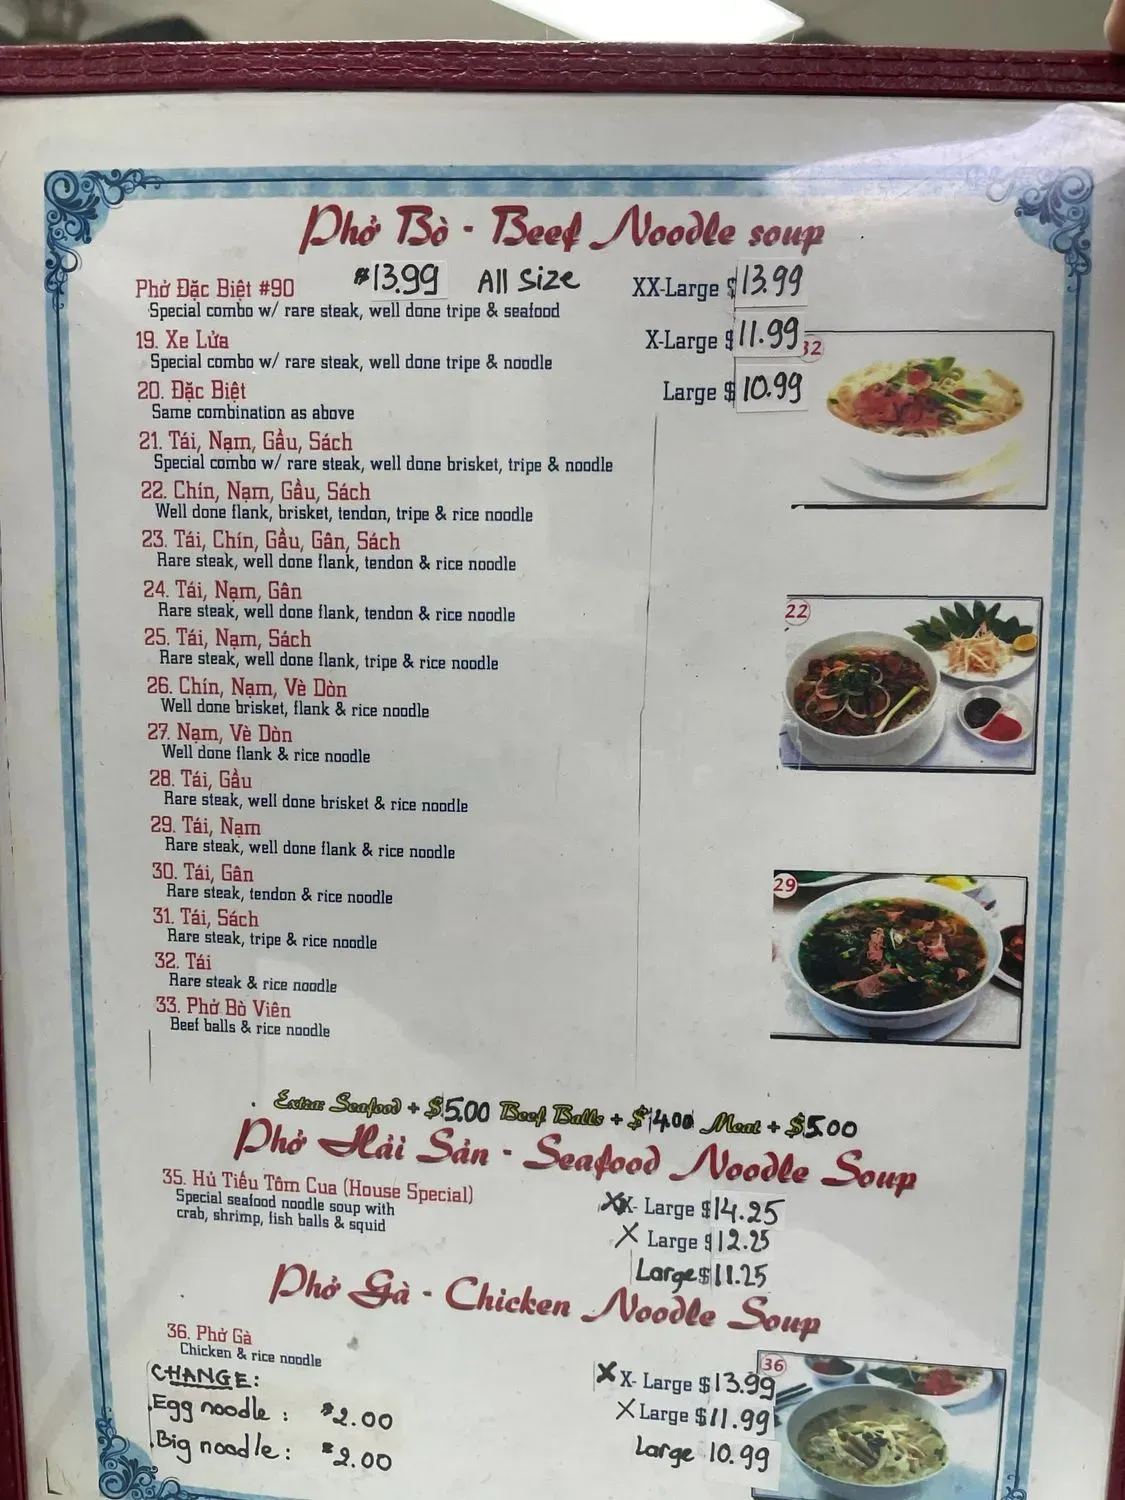 Phở Bò - Beef Noodle soup
Phở Đặc Biệt #90 $13.99 All Size XX-Large $13.99
Special combo w/ rare steak, well done tripe & seafood
19. Xe Lửa X-Large $11.99
Special combo w/ rare steak, well done tripe & noodle
32
20. Đặc Biệt Large $10.99
Same combination as above
21. Tái, Nạm, Gầu, Sách
Special combo w/ rare steak, well done brisket, tripe & noodle
22. Chín, Nạm, Gầu, Sách
Well done flank, brisket, tendon, tripe & rice noodle
23. Tái, Chín, Gầu, Gân, Sách
Rare steak, well done flank, tendon & rice noodle
24. Tái, Nạm, Gân
Rare steak, well done flank, tendon & rice noodle
22
25. Tái, Nạm, Sách
Rare steak, well done flank, tripe & rice noodle
26. Chín, Nạm, Vè Dòn
Well done brisket, flank & rice noodle
27. Nạm, Vè Dòn
Well done flank & rice noodle
28. Tái, Gầu
Rare steak, well done brisket & rice noodle
29. Tái, Nạm
Rare steak, well done flank & rice noodle
30. Tái, Gân
Rare steak, tendon & rice noodle
29
31. Tái, Sách
Rare steak, tripe & rice noodle
32. Tái
Rare steak & rice noodle
33. Phở Bò Viên
Beef balls & rice noodle
Extra: Seafood + $5.00 Beef Balls + $4.00 Meat + $5.00
Phở Hải Sản - Seafood Noodle Soup
35. Hủ Tiếu Tôm Cua (House Special)
Special seafood noodle soup with
crab, shrimp, fish balls & squid
XX- Large $14.25
X Large $12.25
Large $11.25
Phở Gà - Chicken Noodle Soup
36. Phở Gà
Chicken & rice noodle
CHANGE:
Egg noodle : $2.00
Big noodle : $2.00
X X- Large $13.99
X Large $11.99
Large 10.99
36